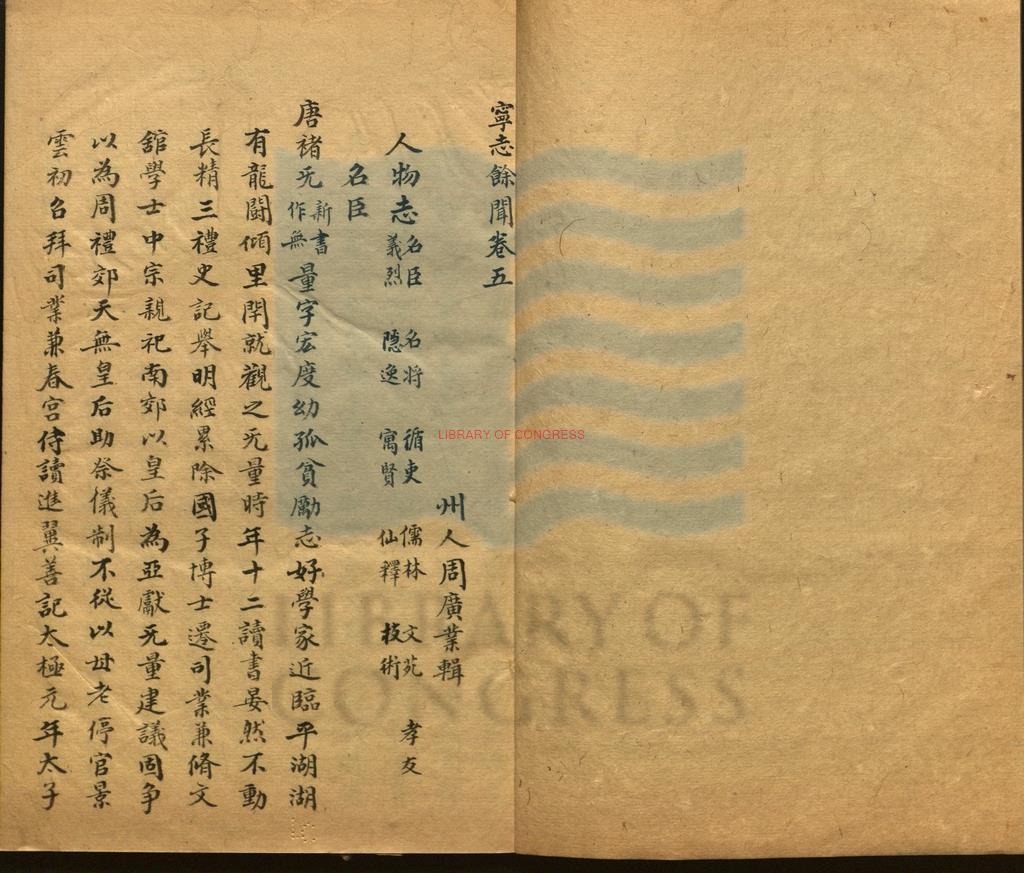 寧志餘聞卷五
州人周廣業輯
人物志 名臣 名將 循吏 儒林 文苑 孝友
義烈 隱逸 寓賢 仙釋 技術
名臣
唐褚无新書作無量字宏度幼孤貧勵志好學家近臨平湖湖
有龍鬪傾里閈就觀之无量時年十二讀書晏然不動
長精三禮史記舉明經累除國子博士遷司業兼脩文
舘學士中宗親祀南郊以皇后為亞獻无量建議固争
以為周禮郊天無皇后助祭儀制不從以母老停官景
雲初召拜司業兼春宫侍讀進翼善記太極元年太子
LIBRARY OF CONGRESS
LIBRARY OF
CONGRESS